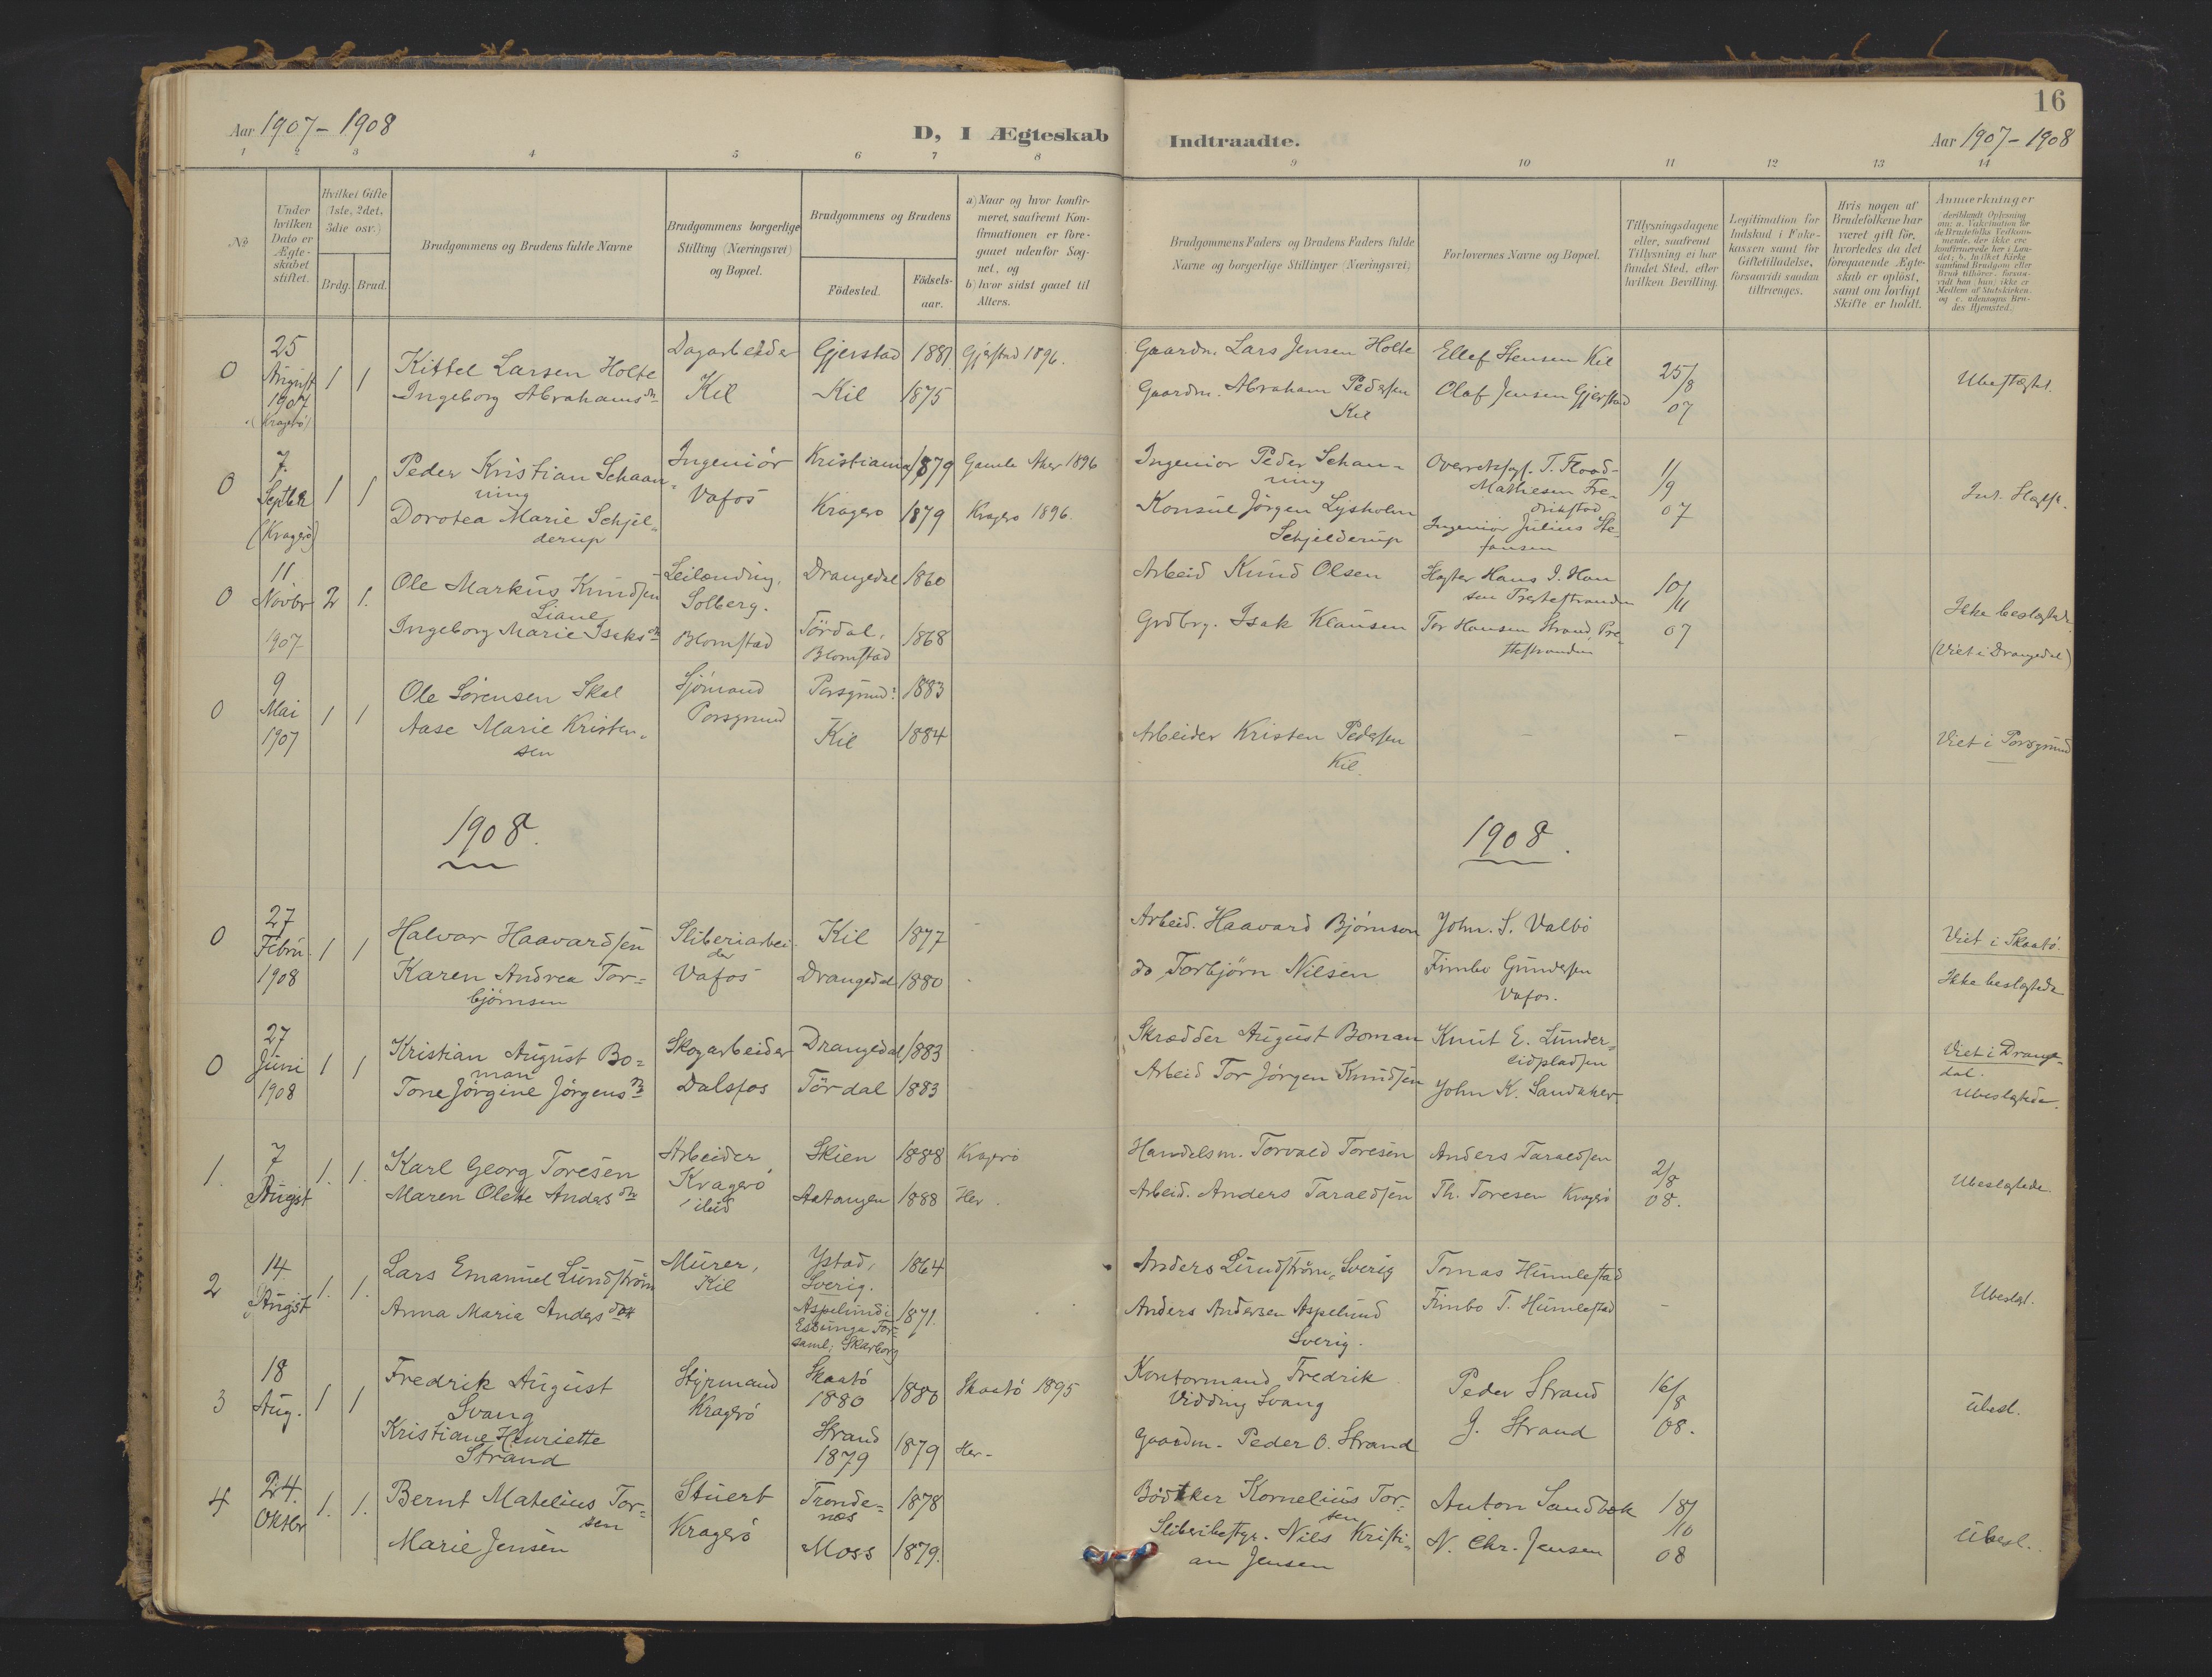 Aar 1907-1908
D, I Ægteskab
Indtraadte.
16
Aar 1907-1908
1 2 3 4 5 6 7 8 9 10 11 12 13 14
No
Under
hvilken
Dato er
Ægte-
skabet
stiftet.
Hvilket Gifte
(1ste, 2det,
3die osv.)
Brdg.
Brud.
Brudgommens og Brudens fulde Navne
Brudgommens borgerlige
Stilling (Næringsvei)
og Bopæl.
Brudgommens og Brudens
Födested.
Födsels-
aar.
a) Naar og hvor konfir-
meret, saafremt Kon-
firmationen er fore-
gaaet udenfor Sog-
net, og
b) hvor sidst gaaet til
Alters.
Brudgommens Faders og Brudens Faders fulde
Navne og borgerlige Stillinger (Næringsvei)
Forlovernes Navne og Bopæl.
Tillysningsdagene
eller, saafremt
Tillysning ei har
fundet Sted, efter
hvilken Bevilling.
Legitimation for
Indskud i Enke-
kassen samt for
Giftetilladelse,
forsaavidt saadan
tiltrænges.
Hvis nogen af
Brudefolkene har
været gift før,
hvorledes da det
foregaaende Ægte-
skab er oplöst,
samt om lovligt
Skifte er holdt.
Anmærkninger
(deriblandt Oplysning
om: a. Vakcination for
de Brudefolks Vedkom-
mende, der ikke ere
konfirmerede her i Lan-
det; b. hvilket Kirke-
samfund Brudgom eller
Brud tilhører, forsaa-
vidt han (hun) ikke er
Medlem af Statskirken,
og c. udensogns Bru-
des Hjemsted.
0
25
August
1907
(Kragerö)
1 1
Kittel Larsen Holte
Ingeborg Abrahamsdtr
Dagarbeider
Kil
Gjerstad 1881
Kil 1875
Gjerstad 1896.
Gaardm. Lars Jensen Holte
Gaardm. Abraham Pedersen
Kil
Ellef Stensen Kil
Olaf Jensen Gjerstad
25/
8
07
Ubeslægtet.
0
7.
Septbr
(Kragerö)
1 1
Peder Kristian Schaan-
ning
Dorotea Marie Schjel-
derup
Ingeniör
Vafos
Kristiania 1879
Kragerö 1879
Gamle Aker 1896
Kragerö 1896.
Ingeniör Peder Schan-
ning
Konsul Jörgen Lysholm
Schjelderup
Overretssagf. T. Flood-
Mathiesen Fre-
drikstad
Ingeniör Julius Ste-
fansen
1/
9
07
Int. Slægtsk.
0
11
Novbr
1907
2 1.
Ole Markus Knudsen
Liane
Ingeborg Marie Isaksdtr
Leilænding,
Solberg.
Blomstad
Drangedal 1860
Tördal,
Blomstad
1868
Arbeid Knud Olsen
Grdbrg. Isak Klausen
Hans J. Han
sen
Tor Hansen Strand, Pre-
stestranden
10/
11
07
Ikke beslægtede.
(Viet i Drangedal)
0
9
Mai
1907
1 1
Ole Sörensen Skal
Aase Marie Kristen-
sen
Sjömand
Porsgrund
Porsgrund: 1883
Kil 1884
Arbeider Kristen Pedersen
Kil.
-
-
Viet i Porsgrund
1908.
1908.
0
27
Febru.
1908
1 1
Halvor Haavardsen
Karen Andrea Tor-
björnsen
Sliberiarbei-
der
Vafos
Kil 1877
Drangedal 1880
Arbeid. Haavard Björnson
do Torbjörn Nilsen
John. S. Valbö
Fimbo Gundersen
Vafos.
Viet i Skaatö.
Ikke beslægtede
0
27
Juni
1908
1 1
Kristian August Bo-
man
Tone Jörgine Jörgensdtr
Skogarbeider
Dalsfos
Drangedal 1883
Tördal 1883
Skrædder August Boman
Arbeid Tor Jörgen Knudsen
Knut E. Lunder-
eidpladsen
John K. Sandaker
Viet i Drange-
dal.
Ubeslægtede.
1.
7
August
1. 1.
Karl Georg Toresen
Maren Olette Andersdtr
Arbeider
Kragerö
Skien 1888 Kragerö
Aatangen 1888 Her.
Handelsm. Torvald Toresen
Arbeid. Anders Taraldsen
Anders Taraldsen
Th. Toresen Kragerö
2/8
08.
Ubeslægtede.
2
14
August
1. 1.
Lars Emanuel Lundström
Anna Maria Andersdotr
Murer,
Kil
Ystad,
Sverig.
1864
Aspelund i
Essunga For-
saml; Skarborg
1871.
Anders Lundström, Sverig
Anders Andersen Aspelund
Sverig.
Tomas Humlestad
Fimbo T. Humlestad
-
Ubeslægt.
3
18
Aug.
1 1
Fredrik August
Svang
Kristiane Henriette
Strand
Styrmand
Kragerö
Skaatö
1880
1880
Skaatö 1895
Strand
1879
1879
Her-
Kontormand Fredrik
Vidding Svang
Gaardm. Peder O. Strand
Peder Strand
J. Strand
16/
8
08.
Ubesl.
4
24.
Oktbr
1. 1.
Bernt Matelius Tor-
sen
Marie Jensen
Stuert
Kragerö
Tronde-
næs
1878
Moss 1879.
Bödtker Kornelius Tor-
sen
Sliberibestyr. Nils Kristi-
an Jensen
Anton Sandbæk
N. Chr. Jensen
18/
10
08
Ubesl.